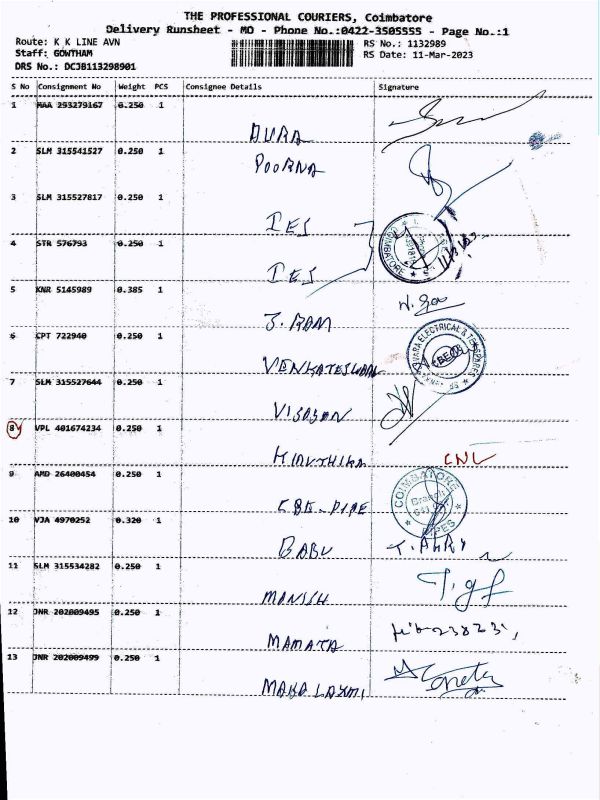 THE PROFESSIONAL COURIERS, Coimbatore
Delivery Runsheet - MO - Phone No.:0422-3505555 - Page No.:1
Route: K K LINE AVN
RS No.: 1132989
Staff: GOWTHAM
RS Date: 11-Mar-2023
DRS No.: DCJB113298901
S No Consignment No Weight PCS Consignee Details Signature
1 MAA 253279167 0.250 1
DURA
2 SLM 315541527 0.250 1
POORNA
3 SLM 315527817 0.250 1
IES
4 STR 576793 0.250 1
IES
COIMBATORE
5 KNR 5145989 0.385 1
S. RAM
6 CPT 722940 0.250 1
VENKATESWARA
VARA ELECTRICAL &
7 SLM 315527644 0.250 1
8 VPL 401674234 0.250 1
KIRUTHIKA CNL
9 AMD 26400454 0.250 1
CBE-PIPE
COIMBATORE
Branch
PIPES
10 VJA 4970252 0.320 1
BABU
11 SLM 315534282 0.250 1
MANISH
12 JNR 202009495 0.250 1
MAMATA
13 JNR 202009499 0.250 1
MAHA LAXMI